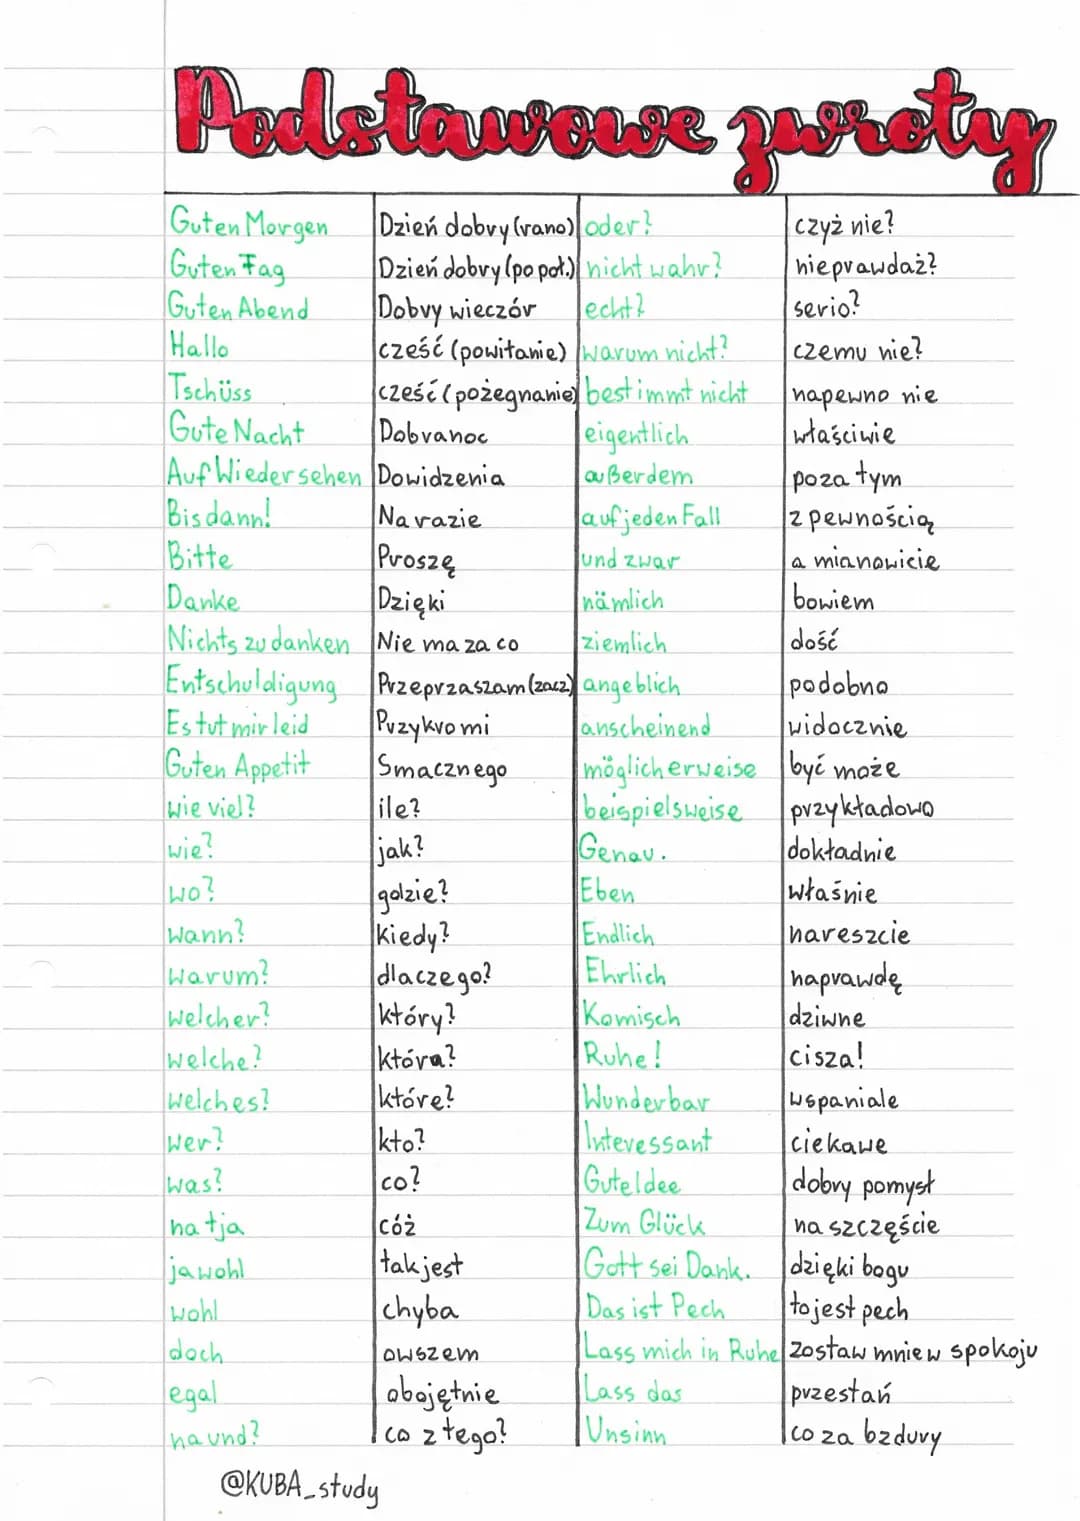 Podstawowe zwroty
Guten Morgen Dzień dobry (rano) oder? czyż nie?
Guten Tag Dzień dobry (po poł.) nicht wahr? nieprawdaż?
Guten Abend Dobry wieczór echt? serio?
Hallo cześć (powitanie) warum nicht? czemu nie?
Tschüss cześć (pożegnanie) bestimmt nicht napewno nie
Gute Nacht Dobranoc eigentlich właściwie
Auf Wiedersehen Dowidzenia außerdem poza tym
Bis dann! Na razie auf jeden Fall z pewnością
Bitte Proszę und zwar a mianowicie
Danke Dzięki nämlich bowiem
Nichts zu danken Nie ma za co ziemlich dość
Entschuldigung Przeprzaszam (zacz) angeblich podobno
Es tut mir leid Przykro mi anscheinend widocznie
Guten Appetit Smacznego möglicherweise być może
wie viel? ile? beispielsweise przykładowo
wie? jak? Genau. dokładnie
wo? gdzie? Eben właśnie
wann? kiedy? Endlich nareszcie
warum? dlaczego? Ehrlich naprawdę
welcher? który? Komisch dziwne
welche? która? Ruhe! cisza!
welches? które? Wunderbar wspaniale
wer? kto? Interessant ciekawe
was? co? Gute Idee dobry pomysł
na tja cóż Zum Glück na szczęście
jawohl tak jest Gott sei Dank. dzięki bogu
wohl chyba Das ist Pech to jest pech
doch owszem Lass mich in Ruhe zostaw mnie w spokoju
egal obojętnie Lass das przestań
na und? co z tego? Unsinn co za bzdury
@KUBA_study